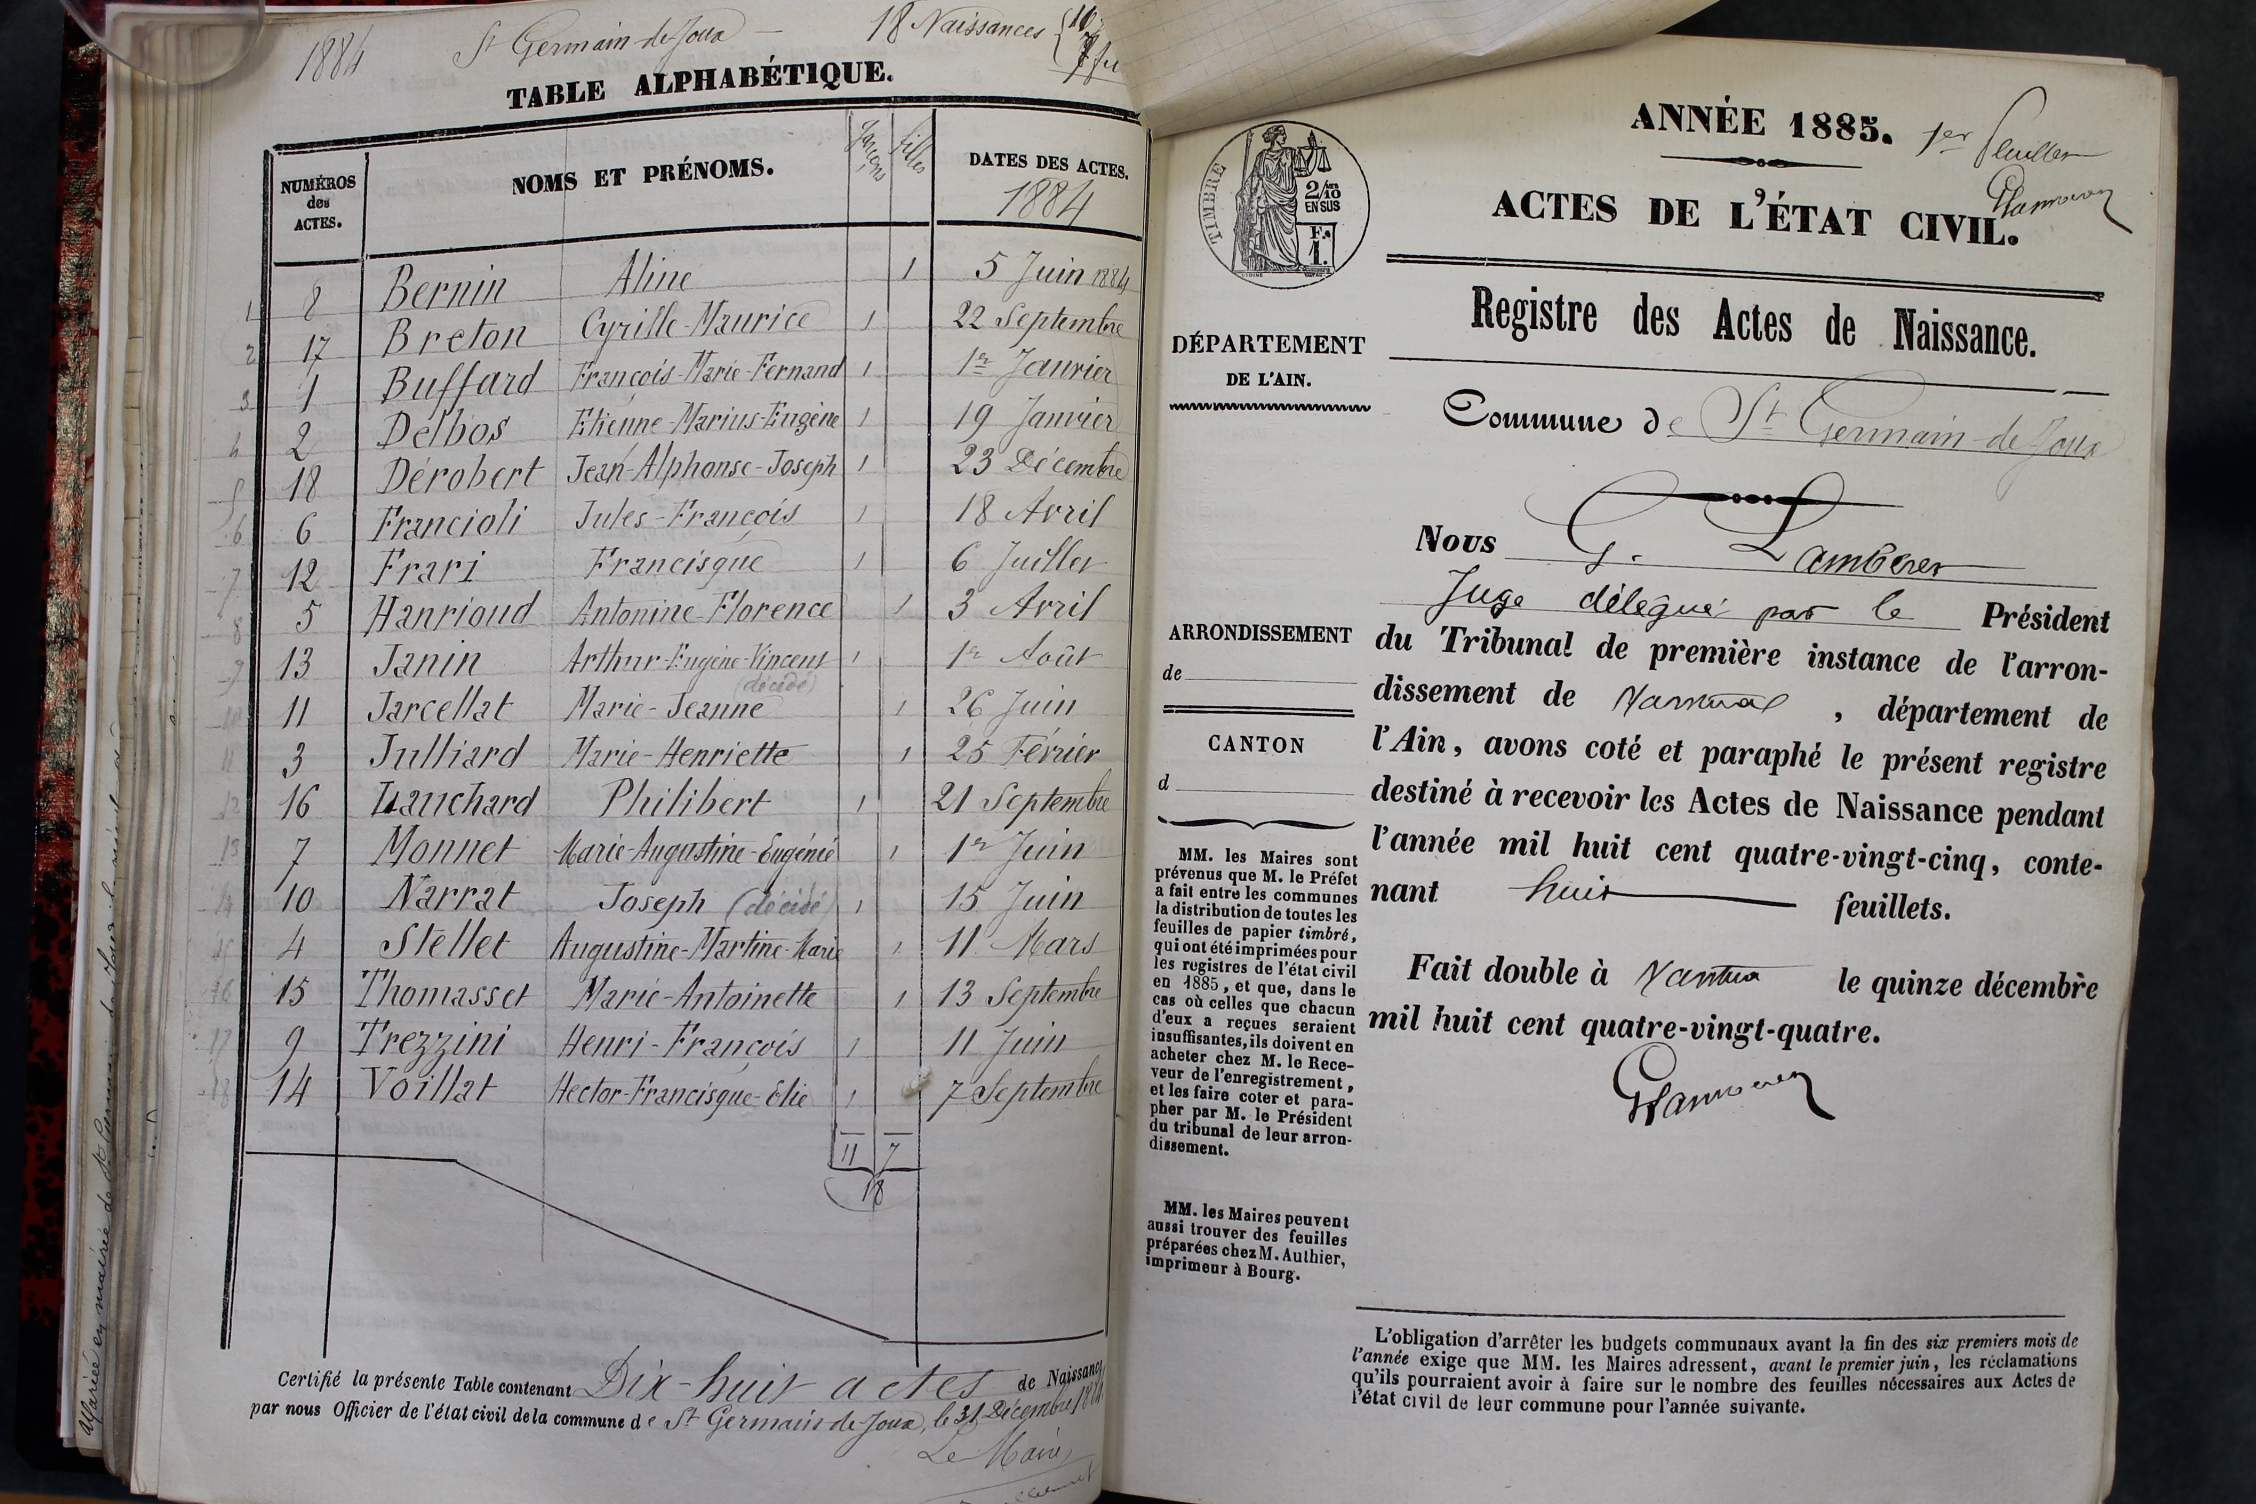 1884 St Germain-de-Joux — 18 Naissances
TABLE ALPHABÉTIQUE.
NUMÉROS des ACTES. NOMS ET PRÉNOMS. Garçons filles DATES DES ACTES. 1884
1 8 Bernin Aline 1 5 Juin 1884
2 17 Breton Cyrille-Maurice 1 22 Septembre
3 1 Buffard François-Marie-Fernand 1 1er Janvier
4 2 Delbos Etienne-Marius-Eugène 1 19 Janvier
5 18 Dérobert Jean-Alphonse-Joseph 1 23 Décembre
6 6 Francioli Jules-François 1 18 Avril
7 12 Frari Francisque 1 6 Juillet
8 5 Hanrioud Antonine-Florence 1 3 Avril
9 13 Janin Arthur-Eugène-Vincent 1 1er Août
(décédé)
10 11 Jarcellat Marie-Jeanne 1 26 Juin
11 3 Julliard Marie-Henriette 1 25 Février
12 16 Lauchard Philibert 1 21 Septembre
13 7 Monnet Marie-Augustine-Eugénie 1 1er Juin
14 10 Narrat Joseph (décédé) 1 15 Juin
15 4 Stellet Augustine-Martine-Marie 1 11 Mars
16 15 Thomasset Marie-Antoinette 1 13 Septembre
17 9 Trezzini Henri-François 1 11 Juin
18 14 Voillat Hector-Francisque-Elie 1 7 Septembre
11 7
18
Certifié la présente Table contenant Dix-huit actes de Naissance
par nous Officier de l'état civil de la commune de St Germain de Joux, le 31 Décembre 1884
Le Maire
ANNÉE 1885. 1er feuillet
ACTES DE L'ÉTAT CIVIL.
TIMBRE
2/10
EN SUS
F.
1.
Registre des Actes de Naissance.
DÉPARTEMENT
DE L'AIN.
Commune de St Germain-de-Joux
Nous G.
Juge délégué par le Président
du Tribunal de première instance de l'arron-
dissement de Nantua, département de
l'Ain, avons coté et paraphé le présent registre
destiné à recevoir les Actes de Naissance pendant
l'année mil huit cent quatre-vingt-cinq, conte-
nant huit feuillets.
Fait double à Nantua le quinze décembre
mil huit cent quatre-vingt-quatre.
ARRONDISSEMENT
de
CANTON
d
MM. les Maires sont
prévenus que M. le Préfet
a fait entre les communes
la distribution de toutes les
feuilles de papier timbré,
qui ont été imprimées pour
les registres de l'état civil
en 1885, et que, dans le
cas où celles que chacun
d'eux a reçues seraient
insuffisantes, ils doivent en
acheter chez M. le Rece-
veur de l'enregistrement,
et les faire coter et para-
pher par M. le Président
du tribunal de leur arron-
dissement.
MM. les Maires peuvent
aussi trouver des feuilles
préparées chez M. Authier,
imprimeur à Bourg.
L'obligation d'arrêter les budgets communaux avant la fin des six premiers mois de
l'année exige que MM. les Maires adressent, avant le premier juin, les réclamations
qu'ils pourraient avoir à faire sur le nombre des feuilles nécessaires aux Actes de
l'état civil de leur commune pour l'année suivante.